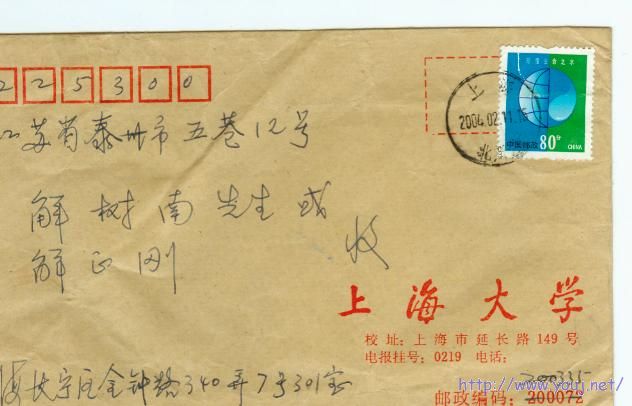 225300
江苏省泰州市五巷12号
解树南先生或
解正刚
收
珍惜生命之水
中国邮政 80分 CHINA
上海
2004.02.11.15
上海大学
校址：上海市延长路149号
电报挂号：0219 电话：
海长宁区金钟路340弄7号301室
200335
邮政编码：200072
http://www.youj.net/